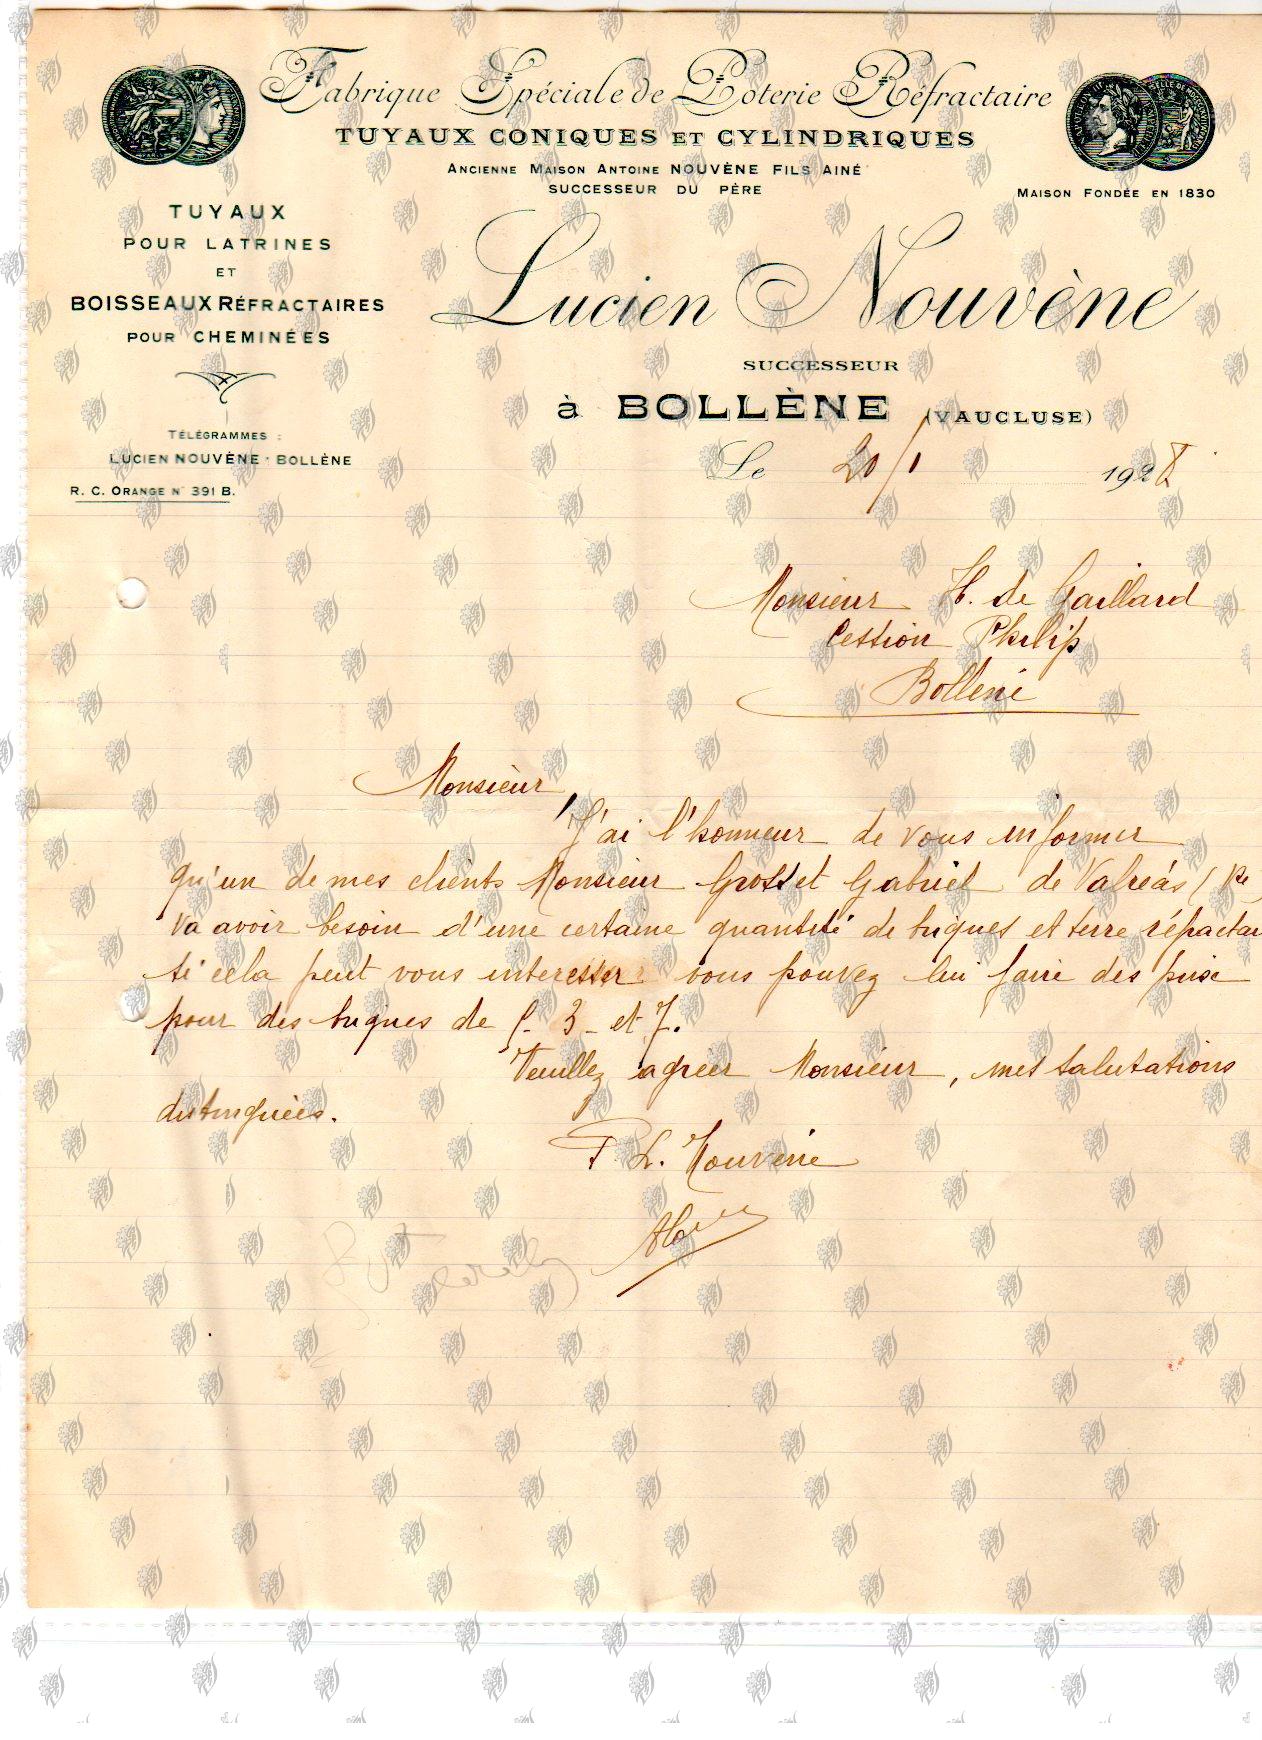 Fabrique Spéciale de Poterie Réfractaire
TUYAUX CONIQUES ET CYLINDRIQUES
ANCIENNE MAISON ANTOINE NOUVÈNE FILS AINÉ
SUCCESSEUR DU PÈRE
MAISON FONDÉE EN 1830
TUYAUX
POUR LATRINES
ET
BOISSEAUX RÉFRACTAIRES
POUR CHEMINÉES
Lucien Nouvène
SUCCESSEUR
à BOLLÈNE (VAUCLUSE)
TÉLÉGRAMMES :
LUCIEN NOUVÈNE - BOLLÈNE
R. C. ORANGE N° 391 B.
Le 20/1 1928
Monsieur H. de Gaillard
Cession Philip
Bollène
Monsieur,
J'ai l'honneur de vous informer
qu'un de mes clients Monsieur Grosset Gabriel de Valréas (
va avoir besoin d'une certaine quantité de briques et terre réfractai
si cela peut vous interesser vous pouvez lui faire des prix
pour des briques de P. 3 - et 7.
Veuillez agréer Monsieur, mes salutations
distinguées.
P. L. Nouvène